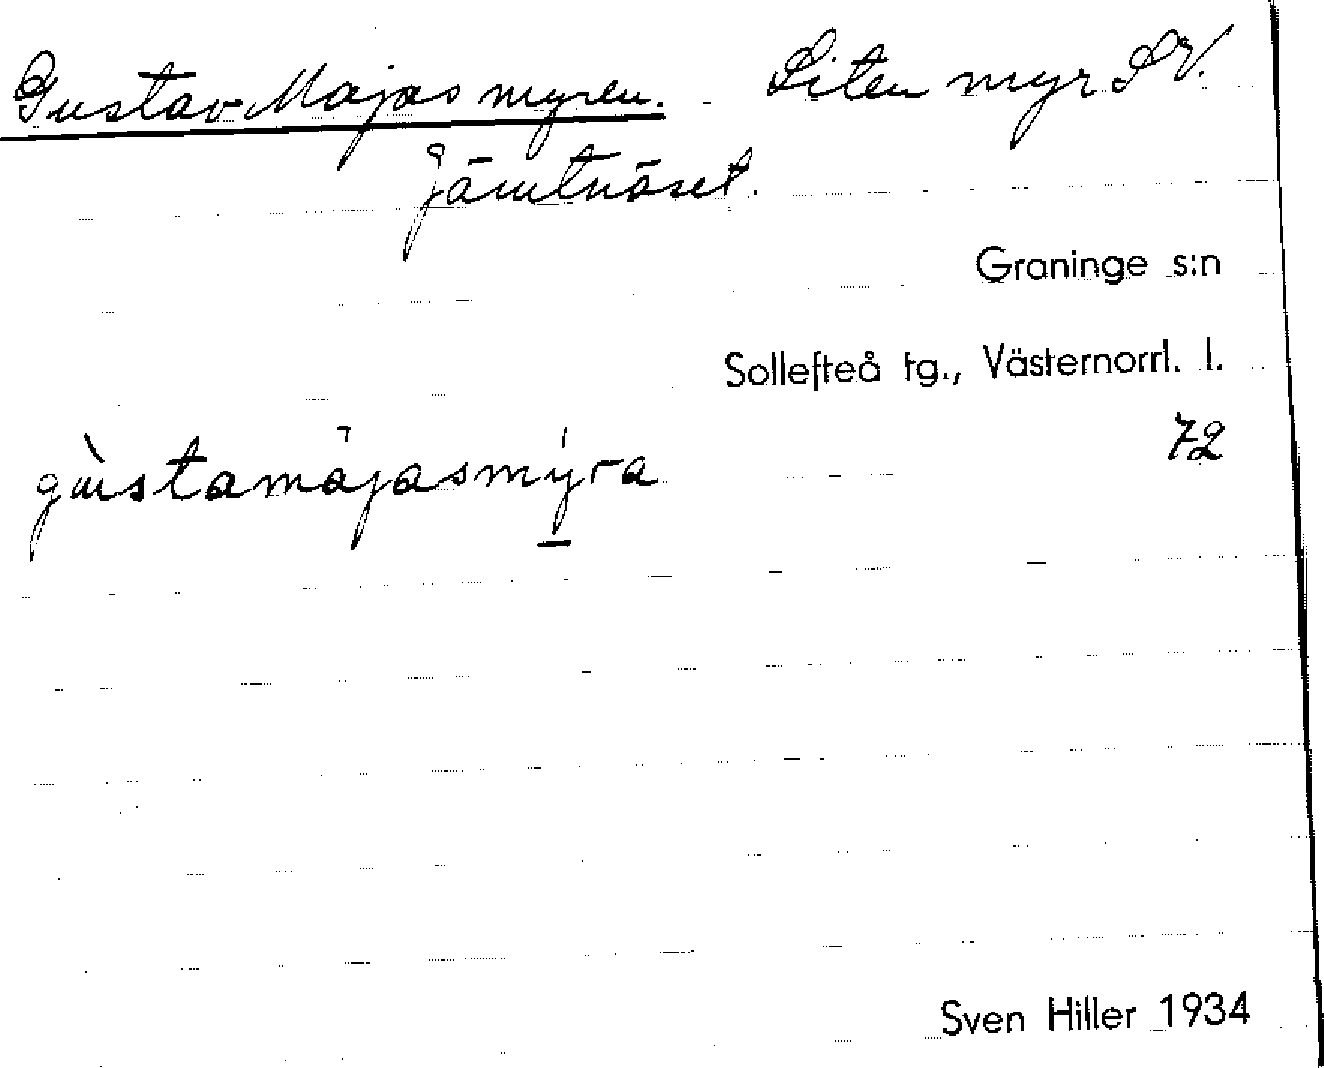 Gustav Majasmyren. Liten myr S.V.
Jämtnäset.
Graninge s:n
Sollefteå tg., Västernorrl. l.
72
gùstamajasmýra
Sven Hiller 1934